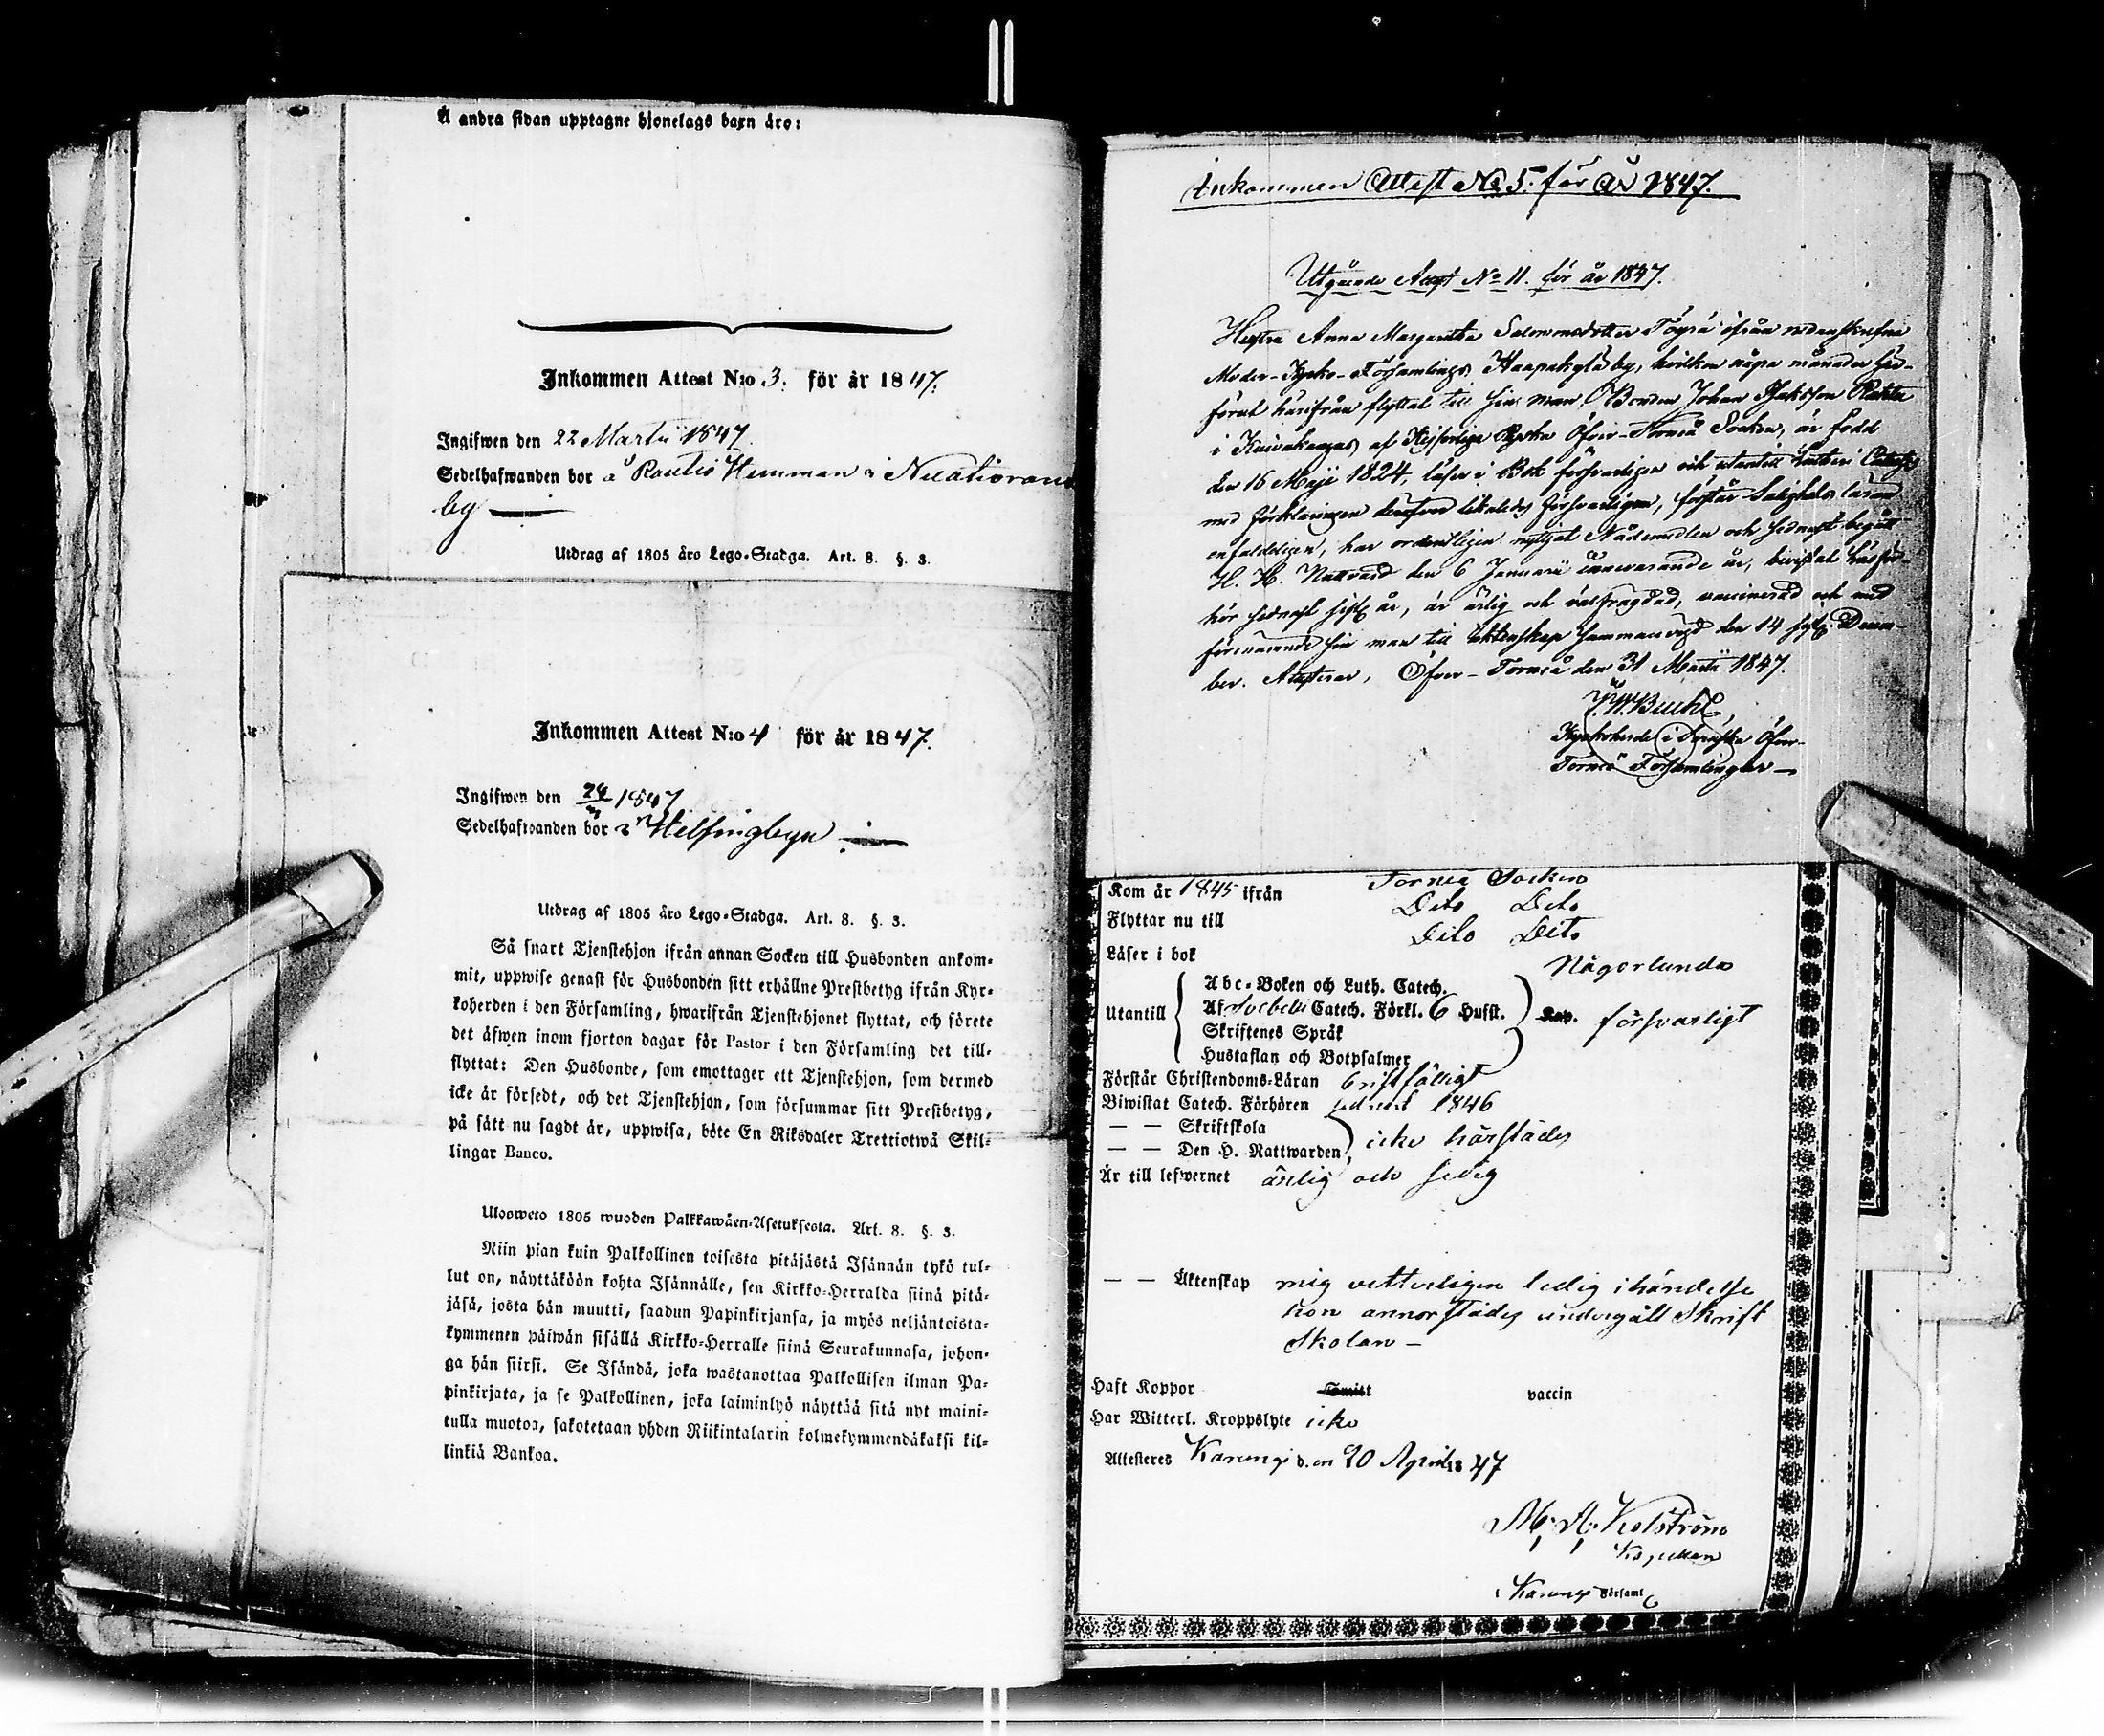 Å andra sidan upptagne hjonelags barn äro:
Inkommen Attest N:o 3. för år 1847.
Ingifwen den 22 Martii 1847.
Sedelhafwanden bor å Rautio Hemman i
by
Utdrag af 1805 års Lego-Stadga. Art. 8. §. 3.
Inkommen Attest N:o 4 för år 1847.
Ingifwen den 24/3 1847
Sedelhafwanden bor i Helsingbyn
Utdrag af 1805 års Lego-Stadga. Art. 8. §. 3.
Så snart Tjenstehjon ifrån annan Socken till Husbonden ankom-
mit, uppwise genast för Husbonden sitt erhållne Prestbetyg ifrån Kyr-
koherden i den Församling, hwarifrån Tjenstehjonet flyttat, och förete
det äfwen inom fjorton dagar för Pastor i den Församling det till-
flyttat: Den Husbonde, som emottager ett Tjenstehjon, som dermed
icke är försedt, och det Tjenstehjon, som försummar sitt Prestbetyg,
på sätt nu sagdt är, uppwisa, böte En Riksdaler Trettiotwå Skil-
lingar Banco.
Ulosweto 1805 wuoden Palkkawäen-Asetuksesta. Art. 8. §. 3.
Niin pian kuin Palkollinen toisesta pitäjästä Isännän tykö tul-
lut on, näyttäköön kohta Isännälle, sen Kirkko-Herralda siinä pitä-
jäsä, josta hän muutti, saadun Papinkirjansa, ja myös neljäntoista-
kymmenen päiwän sisällä Kirkko-Herralle siinä Seurakunnasa, johon-
ga hän siirsi. Se Isändä, joka wastanottaa Palkollisen ilman Pa-
pinkirjata, ja se Palkollinen, joka laiminlyö näyttää sitä nyt maini-
tulla muotoa, sakotetaan yhden Riikintalarin kolmekymmendäkaksi kil-
linkiä Bankoa.
Inkommen Attest No 5. för År 1847.
Utgående Attest No 11. för år 1847.
Hustru Anna Margaretha Salomonsdotter ifrån nedanskrefne
Moder-Kyrko-Församlings Haapakylä by, hvilken några månader här-
förut härifrån flyttat till sin man Bonden Johan Isaksson
i Kuivakangas af Kejserliga Ryska Öfver-Torneå Socken, är född
den 16 Maji 1824, läser i Bok försvarligen och utantill Lutheri Cateches
med förklaringen deröfver likaledes försvarligen, förstår Salighets läran
enfaldeligen, har ordentligen nyttjat Nådemedlen och sednast begått
H. H. Nattvard den 6 Januarii innevarande år, bivistat Läsför-
hör sednast sistl. år, är ärlig och välfrägdad, vaccinerad och med
förenämnde sin man till äktenskap sammanvigd den 14 sistl. Decem-
ber. Attesterar, Öfver-Torneå den 31 Martii 1847.
Kyrkoherde i Svenska Öfver-
Torneå Församlingar
Kom år 1845 ifrån Torneå Socken
Flyttar nu till Dito Dito
Läser i bok Dito Dito
Någorlunda
Utantill
Abc-Boken och Luth. Catech.
Af Svebelii Catech. Förkl. 6 Hufst.
Skriftenes Språk
Hustaflan och Botpsalmer
försvarligt
Förstår Christendoms-Läran
Biwistat Catech. Förhören sednast 1846
— — Skriftskola
— — Den H. Nattwarden icke härstädes
Är till lefwernet ärlig och sedig
— — Äktenskap mig vetterligen ledig ihändelse
hon annorstädes undergått Skrift
Skolan —
Haft Koppor vaccin
Har Witterl. Kroppslyte icke
Attesteres Karungi den 20 April 1847
Kapellan
i Karungi Församl